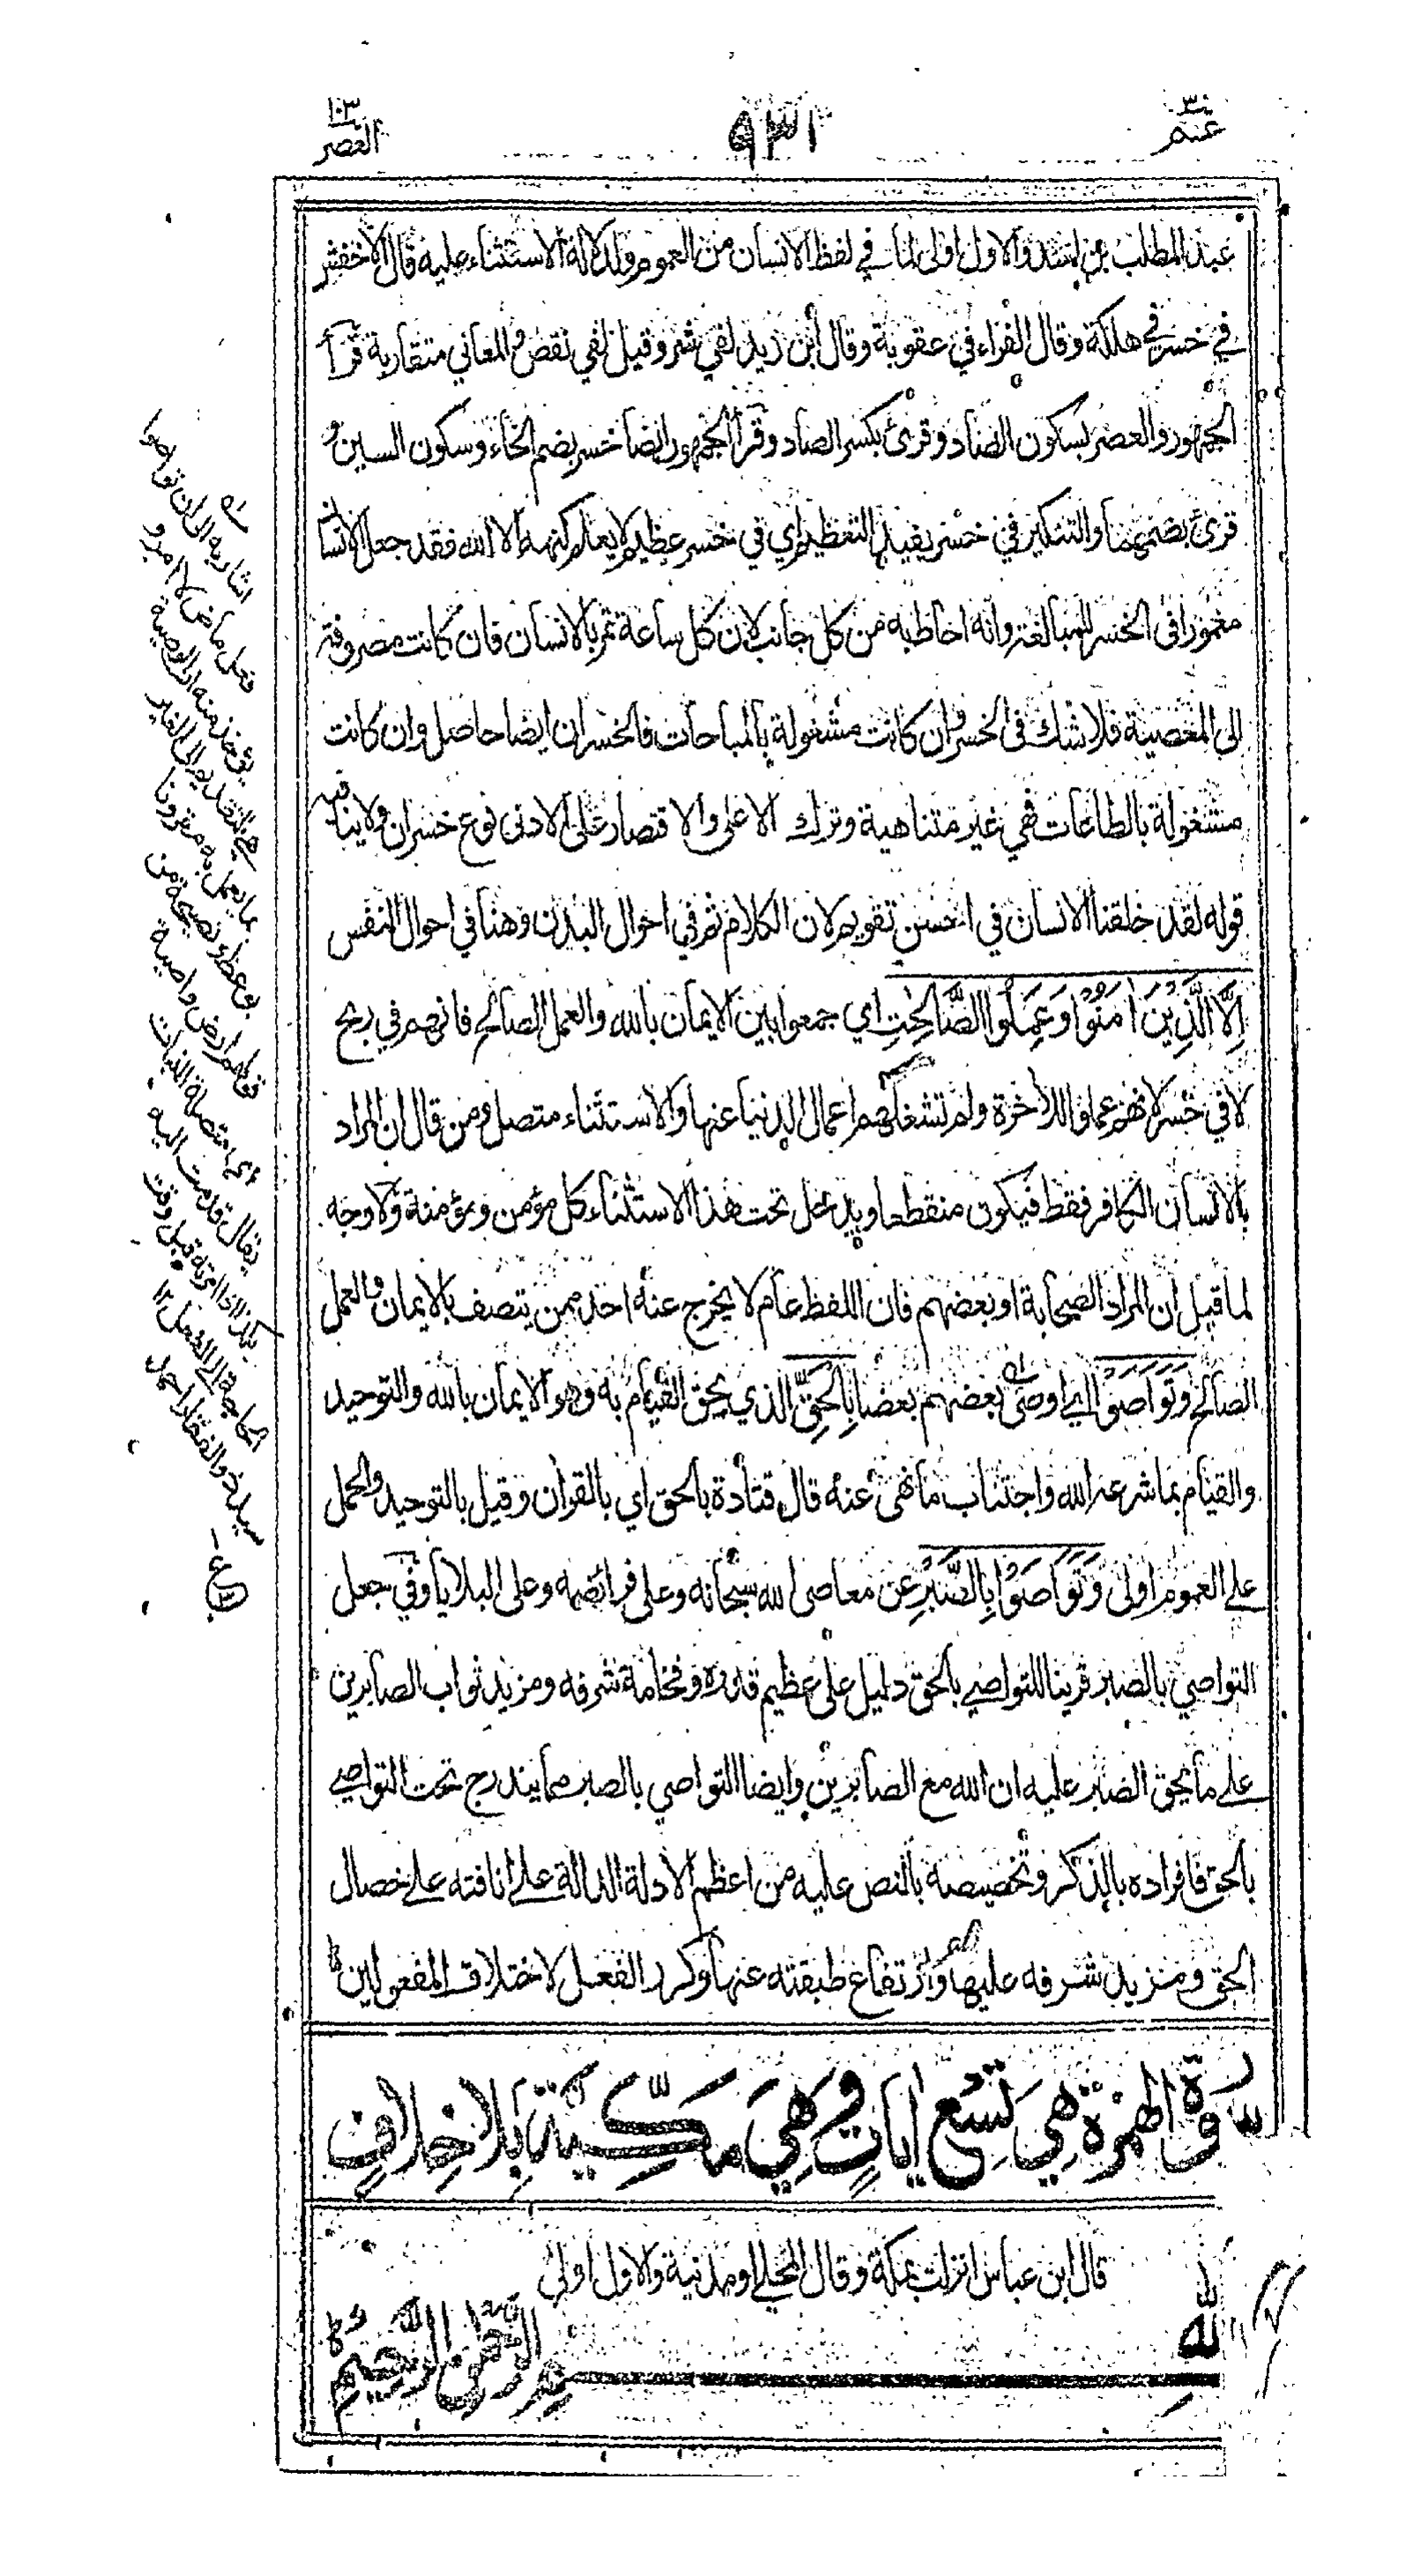 عم ٣٠
٩٣١
العصر ١٠٣
عبد المطلب بن اسد والاول اولى لما في لفظ الانسان من العموم ولدلالة الاستثناء عليه قال الاخفش
في خسر في هلكة وقال الفراء في عقوبة وقال ابن زيد لفي شر وقيل لفي نقص والمعاني متقاربة قرأ
الجمهور والعصر بسكون الصاد وقرئ بكسر الصاد وقرأ الجمهور ايضا خسر بضم الخاء وسكون السين و
قرئ بضمهما والتنكير في خسر يفيد التعظيم اي في خسر عظيم لا يعلم كنهه الا الله فقد جعل الانسان
مغمورا في الخسر للمبالغة وانه احاط به من كل جانب لان كل ساعة تمر بالانسان فان كانت مصروفة
الى المعصية فلا شك في الخسر وان كانت مشغولة بالمباحات فالخسران ايضا حاصل وان كانت
مشغولة بالطاعات فهي غير متناهية وترك الاعلى والاقتصار على الادنى نوع خسران ولا ينافيه
قوله لقد خلقنا الانسان في احسن تقويم لان الكلام ثم في احوال البدن وهنا في احوال النفس
اِلَّا الَّذِيْنَ اٰمَنُوْا وَعَمِلُوا الصّٰلِحٰتِ اي جمعوا بين الايمان بالله والعمل الصالح فانهم في ربح
لا في خسر لانهم عملوا للاخرة ولم تشغلهم اعمال الدنيا عنها والاستثناء متصل ومن قال ان المراد
بالانسان الكافر فقط فيكون منقطعا ويدخل تحت هذا الاستثناء كل مؤمن ومؤمنة ولا وجه
لما قيل ان المراد الصحابة او بعضهم فان اللفظ عام لا يخرج عنه احد ممن يتصف بالايمان والعمل
الصالح وَتَوَاصَوْا اي اوصى بعضهم بعضا بِالْحَقِّ الذي يحق القيام به وهو الايمان بالله والتوحيد
والقيام بما شرعه الله واجتناب ما نهى عنه قال قتادة بالحق اي بالقران وقيل بالتوحيد والحمل
على العموم اولى وَتَوَاصَوْا بِالصَّبْرِ عن معاصي الله سبحانه وعلى فرائضه وعلى البلايا وفي جعل
التواصي بالصبر قرينا للتواصي بالحق دليل على عظيم قدره وفخامة شرفه ومزيد ثواب الصابرين
على ما يحق الصبر عليه ان الله مع الصابرين وايضا التواصي بالصبر مما يندرج تحت التواصي
بالحق فافراده بالذكر وتخصيصه بالنص عليه من اعظم الادلة الدالة على انافته على خصال
الحق ومزيد شرفه عليها وارتفاع طبقته عنها وكرر الفعل لاختلاف المفعولين
سورة الهمزة هي تسع ايات وهي مكية بلا خلاف
قال ابن عباس انزلت بمكة وقال المحلي او مدنية والاول اولى
الله الرحمن الرحيم
اشار به الى ان تواصوا
فعل ماض لا امر و
يؤخذ منه ان الوصية
هي التقديم الى الغير
بما يعمل به مقرونا
بوعظ ونصيحة من
قولهم ارض واصية
اي متصلة النبات
يقال تقدمت اليه
بكذا اذا امرته قبل وقت
الحاجة الى الفعل ١٢
سيد ذو الفقار احمد